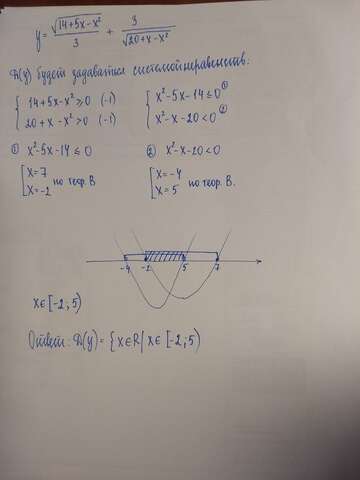 y = √(14+5x-x²)/3 + 3/√(20+x-x²)
Д(y) будет задаваться системой неравенств:
{ 14+5x-x² ≥ 0 (-1) { x²-5x-14 ≤ 0 ①
{ 20+x-x² > 0 (-1) { x²-x-20 < 0 ②
① x²-5x-14 ≤ 0 ② x²-x-20 < 0
[ x=7 [ x=-4
[ x=-2 по теор. В [ x=5 по теор. В.
-4 -2 5 7
x ∈ [-2; 5)
Ответ: Д(y) = { x ∈ R / x ∈ [-2; 5)